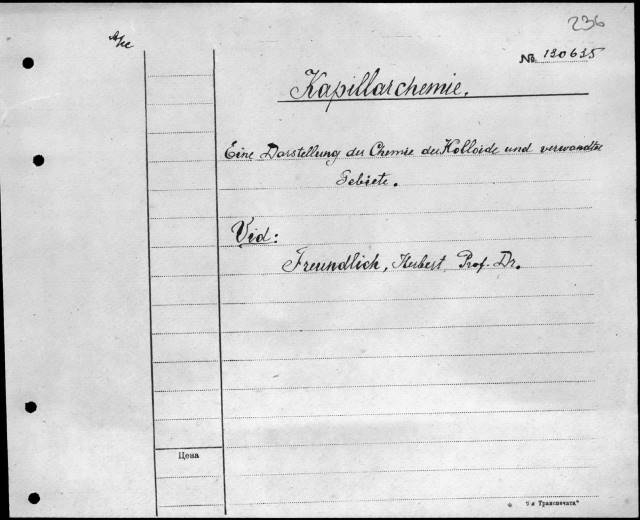 236
№ 190635
Kapillarchemie.
Eine Darstellung der Chemie der Kolloide und verwandter
Gebiete.
Vid:
Freundlich, Herbert Prof. Dr.
Цена
"Транспечата"